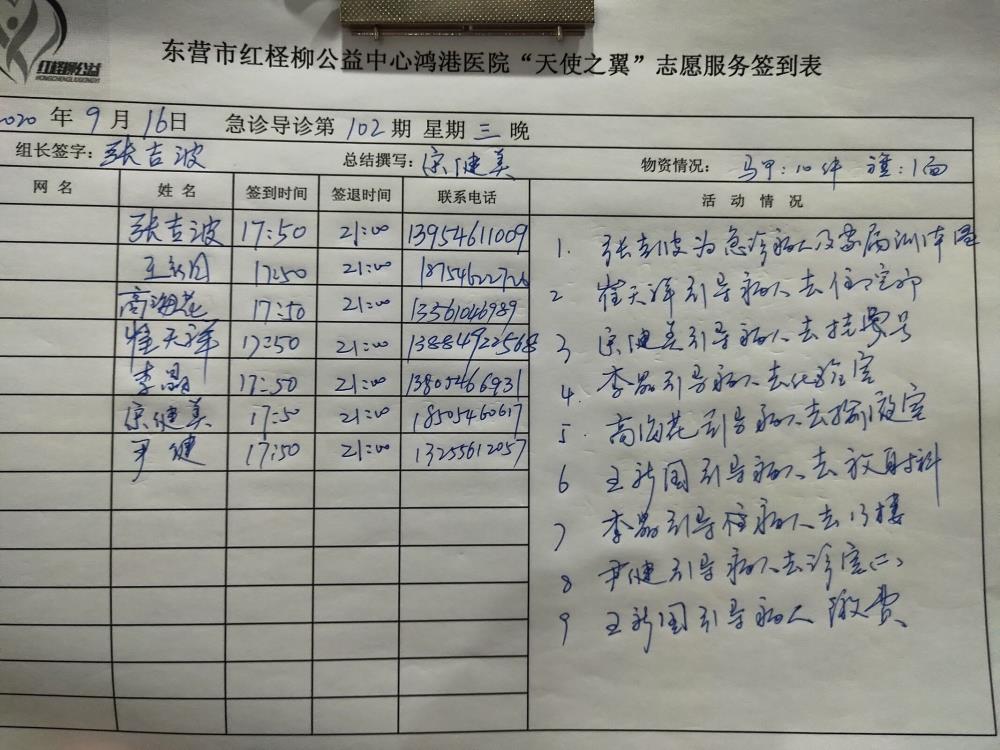 红柽柳公益
HONGCHENGLIUGONGYI
东营市红柽柳公益中心鸿港医院“天使之翼”志愿服务签到表
2020 年 9 月 16 日 急诊导诊第 102 期 星期 三 晚
组长签字: 张吉波 总结撰写: 宗健美 物资情况: 马甲:10件 旗:1面
网名 姓名 签到时间 签退时间 联系电话 活动情况
张吉波 17:50 21:00 13954611009
王新国 17:50 21:00 18754622726
高海花 17:50 21:00 13361046989
崔天祥 17:50 21:00 13884922568
李晶 17:50 21:00 13805466931
宗健美 17:50 21:00 18505460617
尹健 17:50 21:00 13255612057
1. 张吉波为急诊病人及家属测体温
2 崔天祥引导病人去住院部
3 宗健美引导病人去挂号
4. 李晶引导病人去化验室
5. 高海花引导病人去输液室
6 王新国引导病人去放射科
7 李晶引导病人去13楼
8 尹健引导病人去诊室(二)
9 王新国引导病人缴费